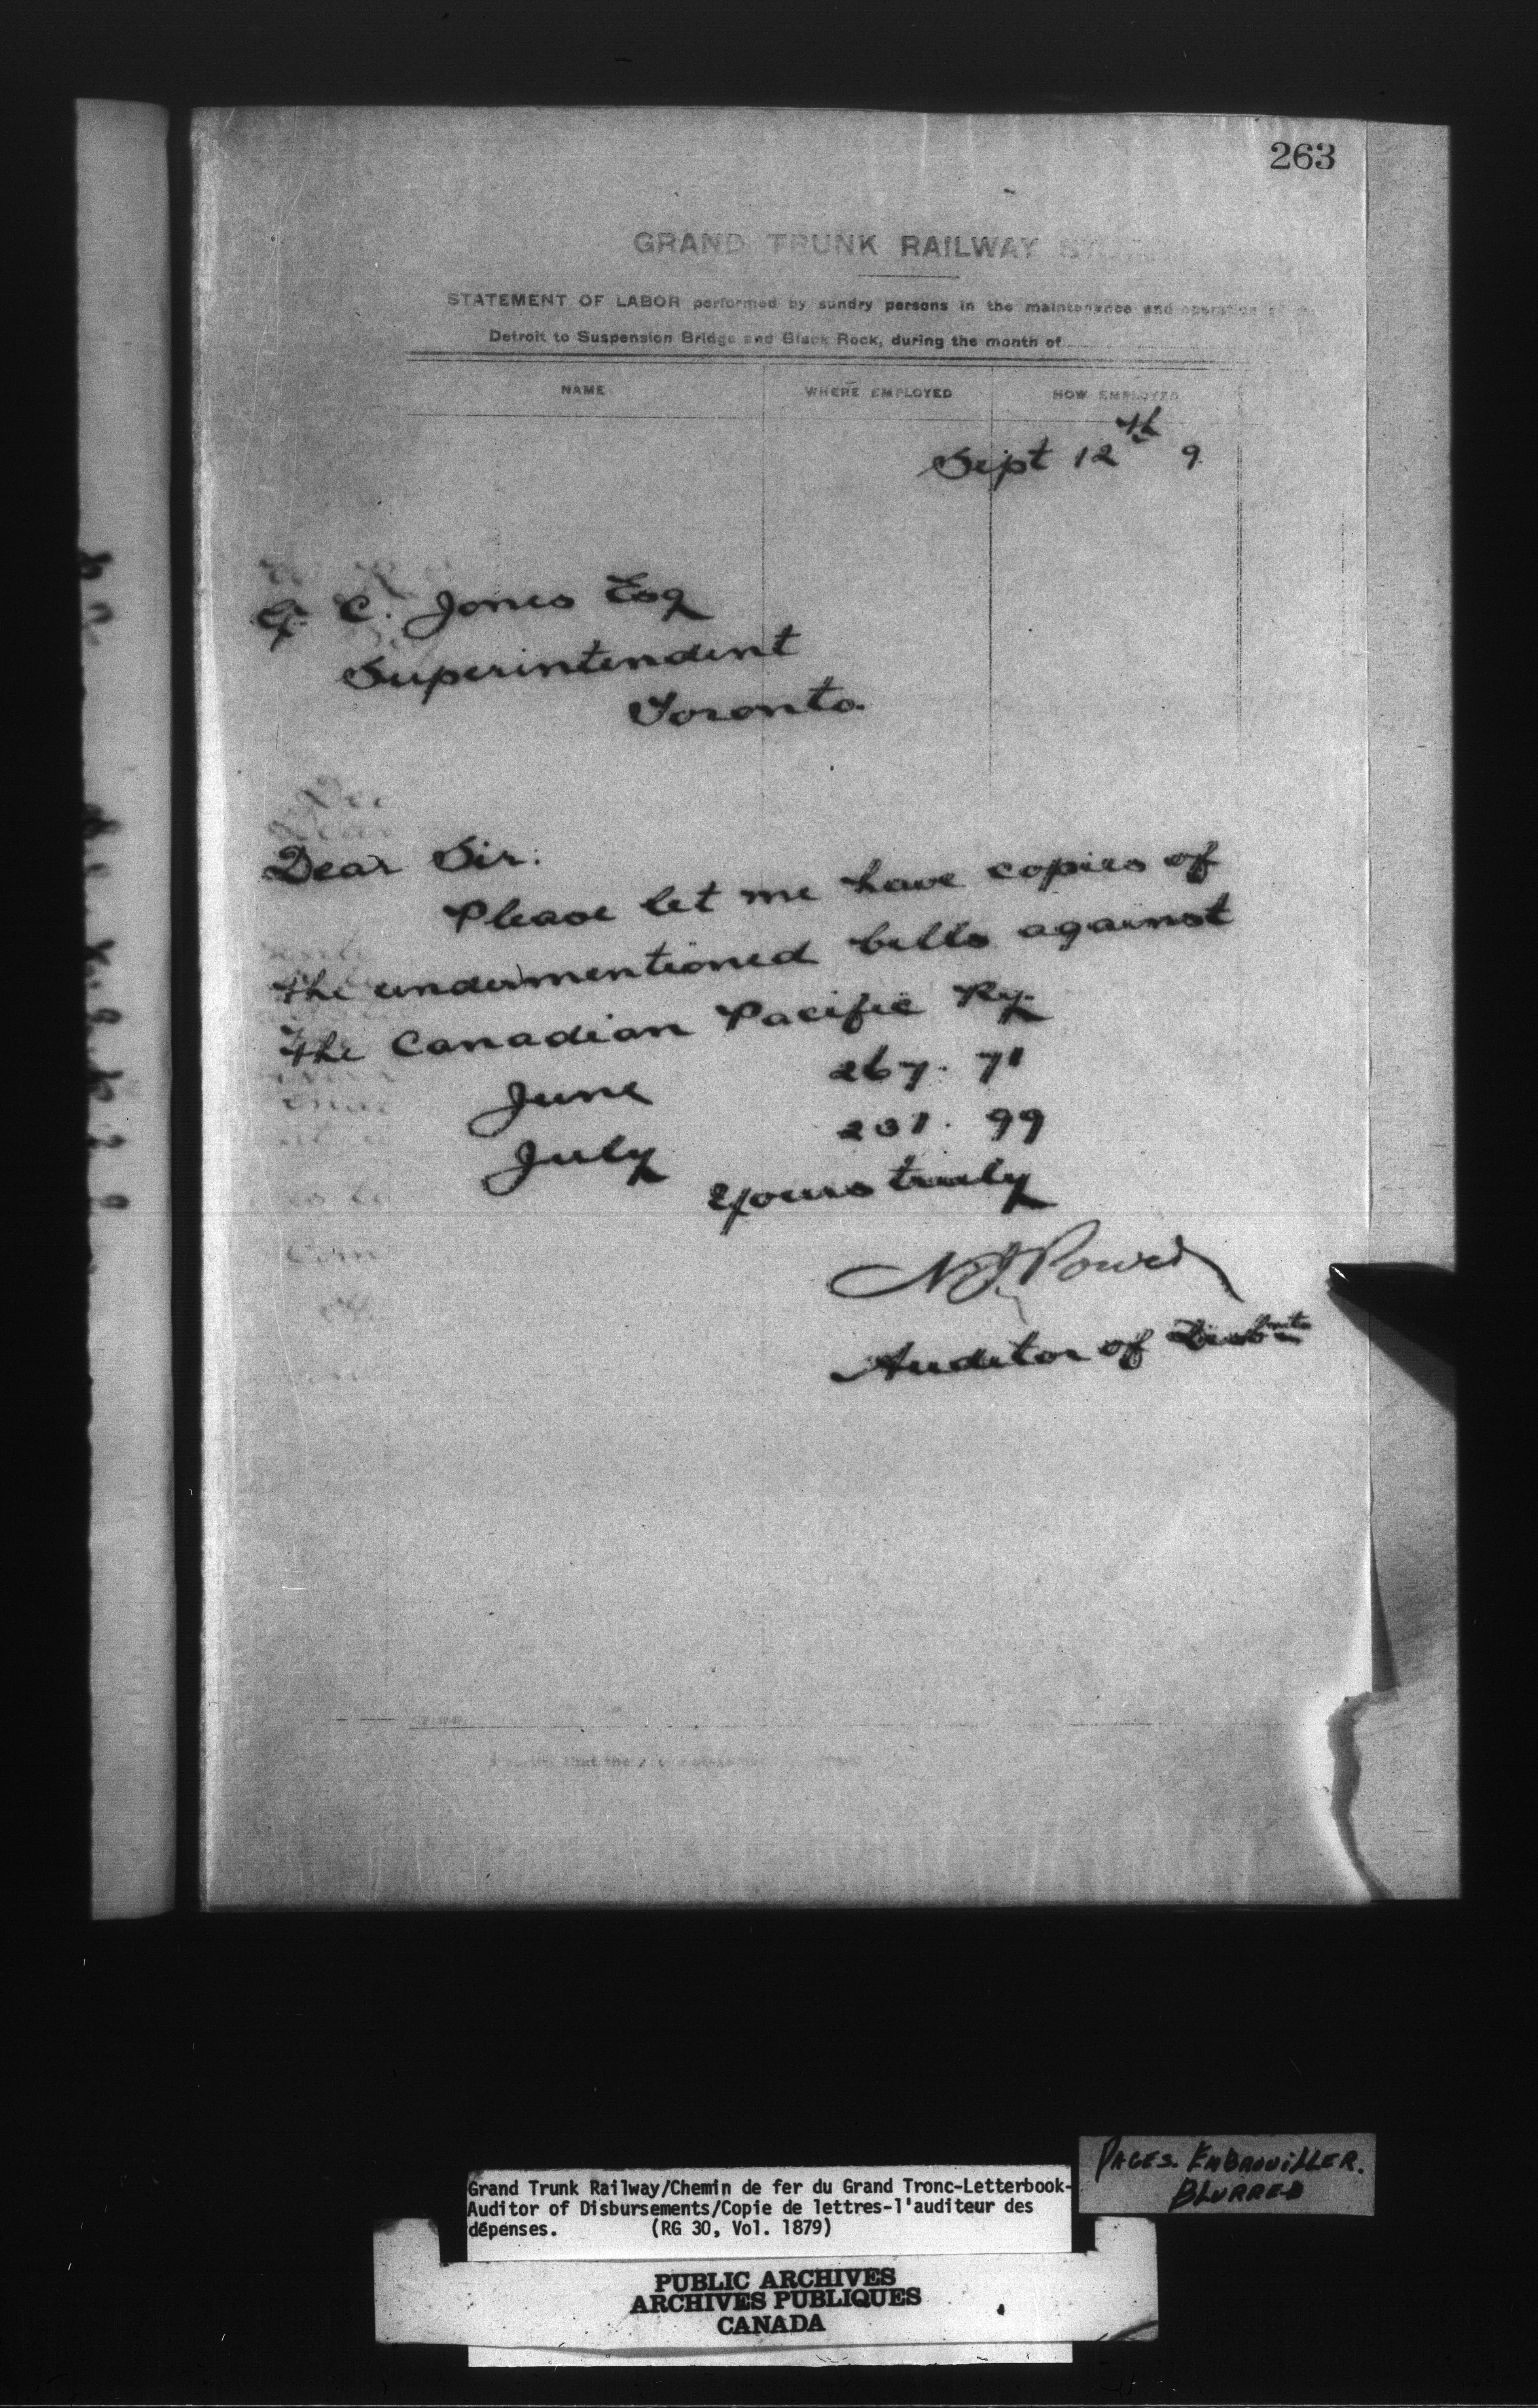 263
GRAND TRUNK RAILWAY
STATEMENT OF LABOR performed by sundry persons in the maintenance and operation
Detroit to Suspension Bridge and Black Rock, during the month of
NAME WHERE EMPLOYED HOW EMPLOYED
Sept 12th 9
C. Jones Esq
Superintendent
Toronto.
Dear Sir:
Please let me have copies of
the undermentioned bills against
the Canadian Pacific Ry.
June 267. 71
July 231. 99
Yours truly
Auditor of Disbmts
that the
Grand Trunk Railway/Chemin de fer du Grand Tronc-Letterbook-
Auditor of Disbursements/Copie de lettres-l'auditeur des
dépenses. (RG 30, Vol. 1879)
PAGES. EMBROUILLER.
BLURRED
PUBLIC ARCHIVES
ARCHIVES PUBLIQUES
CANADA